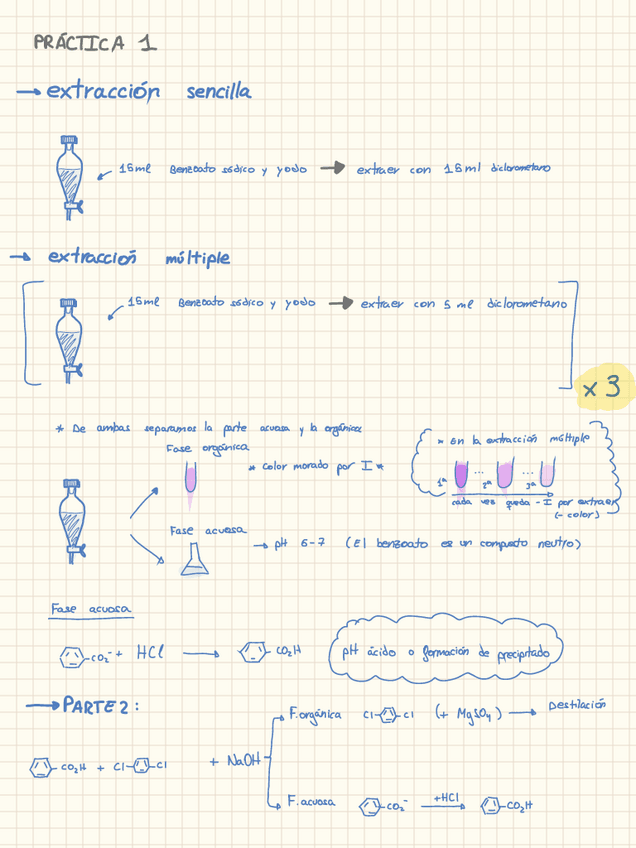 PRÁCTICA 1
→ extracción sencilla
15ml Benzoato sódico y yodo → extraer con 15 ml diclorometano
→ extracción múltiple
15ml Benzoato sódico y yodo → extraer con 5 ml diclorometano
x 3
* De ambas separamos la parte acuosa y la orgánica
Fase orgánica
* color morado por I *
* en la extracción múltiple
1ª ... 2ª ... 3ª
cada vez queda - I por extraer
(- color)
Fase acuosa
→ pH 6-7 (El benzoato es un compuesto neutro)
Fase acuosa
CO₂⁻ + HCl → CO₂H
pH ácido o formación de precipitado
→ PARTE 2:
F.orgánica Cl Cl (+ MgSO₄) → Destilación
CO₂H + Cl Cl + NaOH
F. acuosa CO₂⁻ +HCl → CO₂H